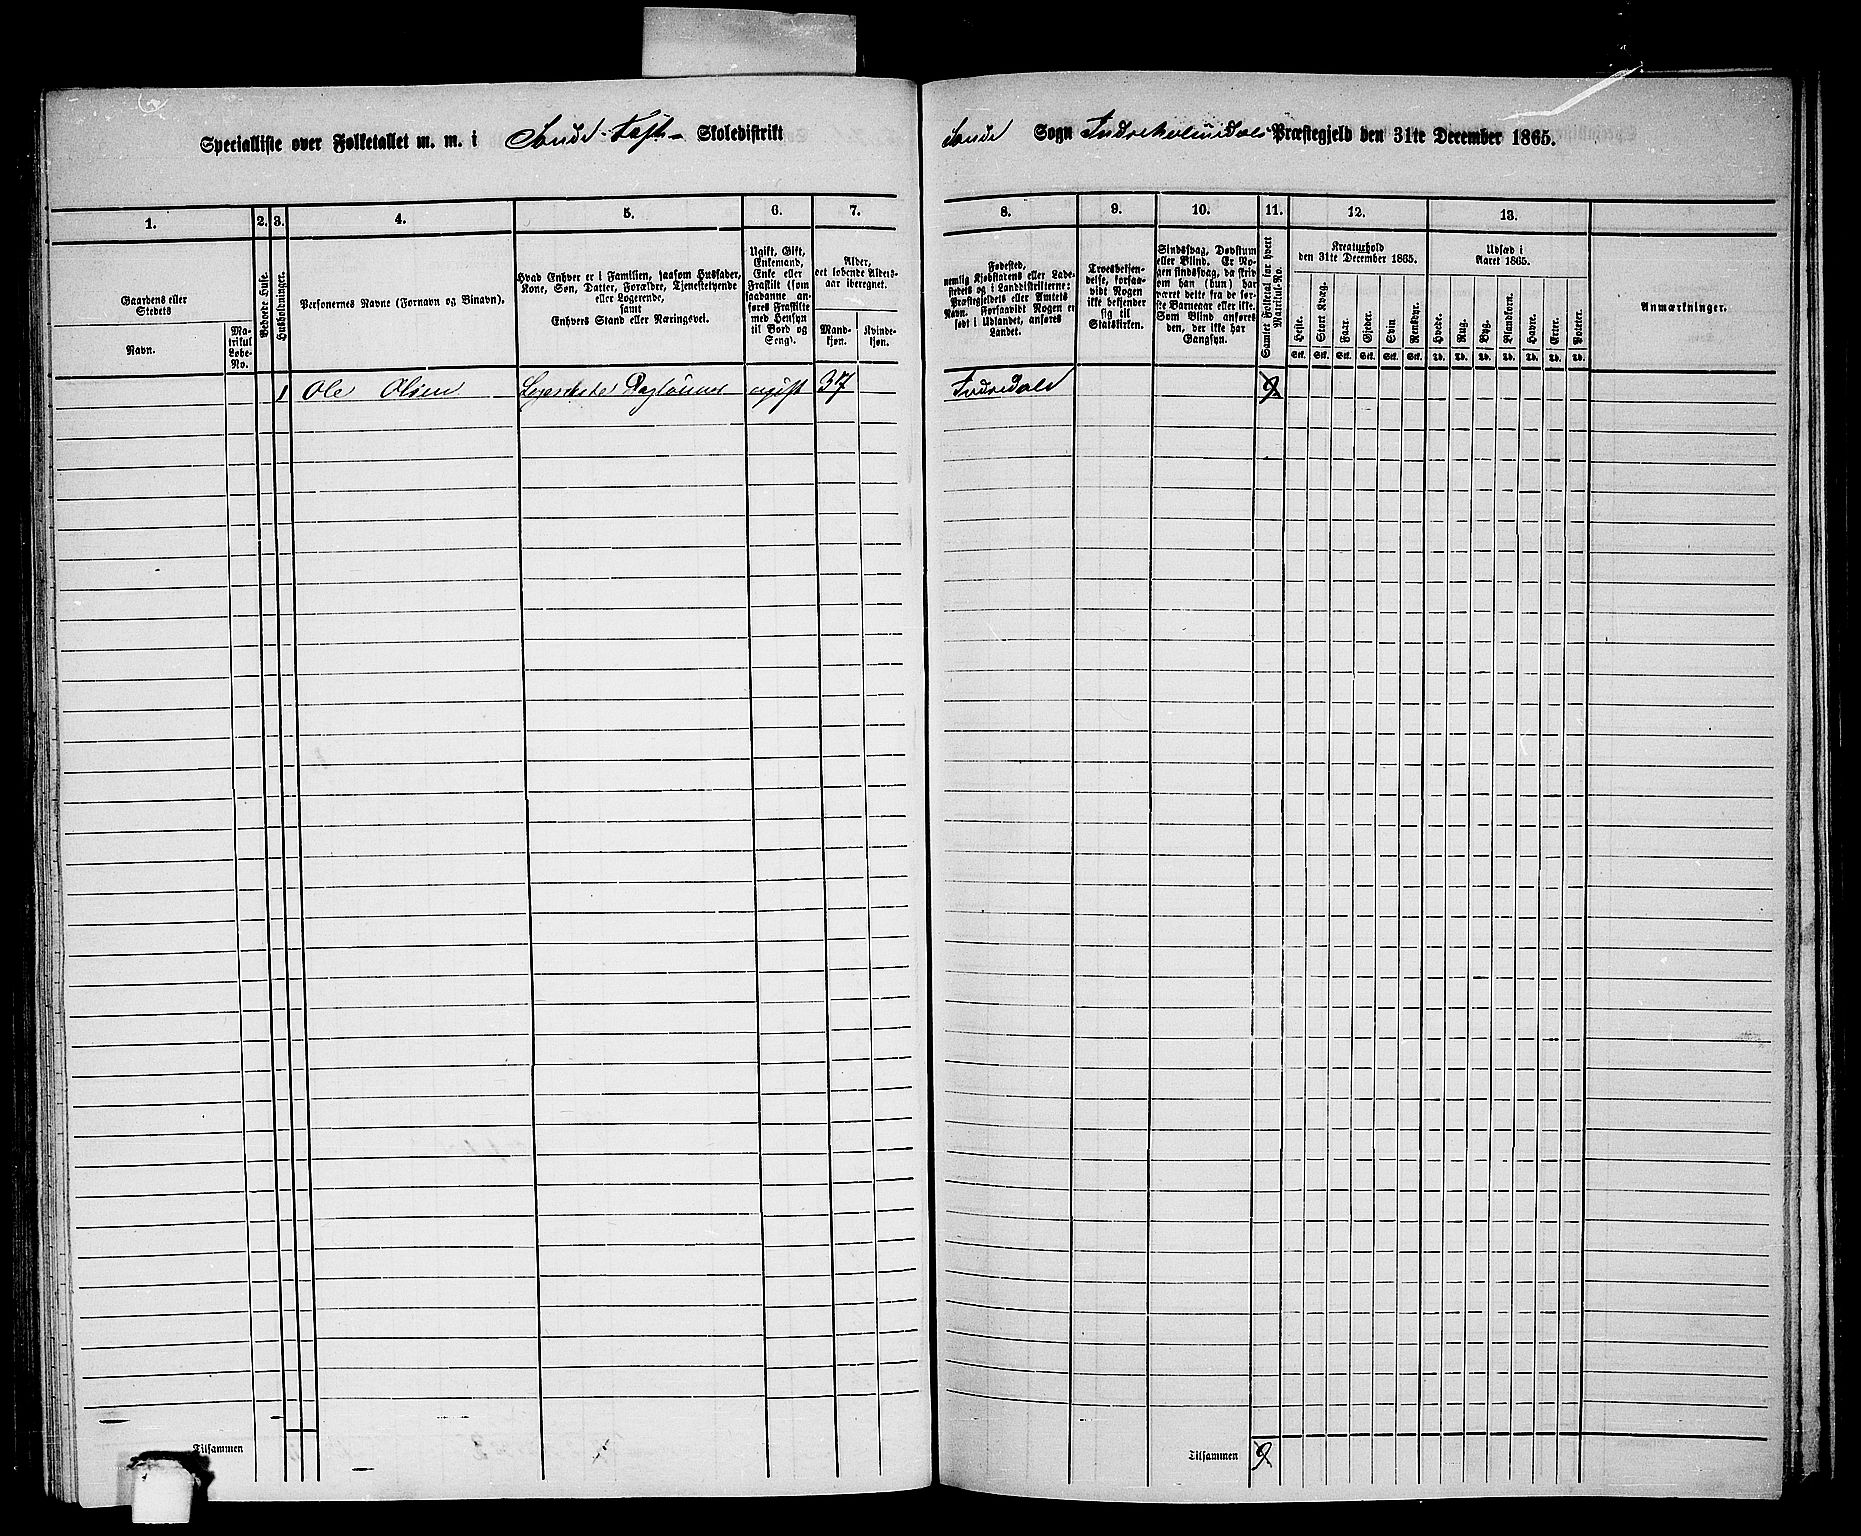 Specialliste over Folketallet m. m. i Sande Skoledistrikt Sande Sogn Indreholmedals Præstegjeld den 31te December 1865.
1. 2. 3. 4. 5. 6. 7. 8. 9. 10. 11. 12. 13.
Gaardens eller Stedets
Navn.
Matrikul Løbe-No.
Beboede Huse.
Husholdninger.
Personernes Navne (Fornavn og Binavn).
Hvad Enhver er i Familien, saasom Husfader,
Kone, Søn, Datter, Forældre, Tjenestetyende
eller Logerende,
samt
Enhvers Stand eller Næringsvei.
Ugift, Gift,
Enkemand,
Enke eller
Fraskilt (som
saadanne an-
føres Fraskilte
med Hensyn
til Bord og
Seng).
Alder,
det løbende Alders-
aar iberegnet.
Mand-
kjøn.
Kvinde-
kjøn.
Fødested,
nemlig Kjøbstadens eller Lade-
stedets og i Landdistrikterne:
Præstegjeldets eller Amtets
Navn. Forsaavidt Nogen er
født i Udlandet, anføres
Landet.
Troesbekjen-
delse, forsaa-
vidt Nogen
ikke bekjender
sig til
Statskirken.
Sindssvag, Døvstum
eller Blind. Er No-
gen sindssvag, da skriv
om han (hun) har
været dette fra de før-
ste Barneaar eller ikke.
Som Blind anføres
den, der ikke har
Gangsyn.
Samlet Folketal for hvert Matrikul-No.
Kreaturhold
den 31te December 1865.
Heste.
Stort Kvæg.
Faar.
Gjeder.
Svin
Rensdyr.
Udsæd i
Aaret 1865.
Hvede.
Rug.
Byg.
Blandkorn.
Havre.
Erter.
Poteter.
Stk. Stk. Stk. Stk. Stk. Stk. Td. Td. Td. Td. Td. Td. Td.
Anmærkninger.
1 Ole Olsen Logerende Daglønner ugift 37 Indredale 9
Tilsammen
Tilsammen 9